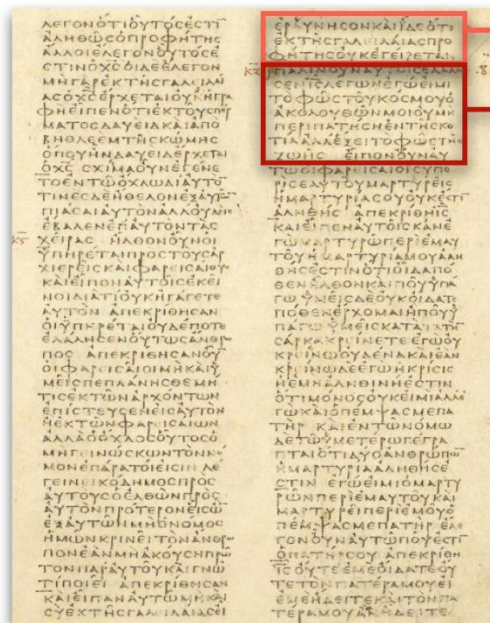 ΛΕΓΟΝΟΤΙΟΥΤΟCΕCΤΙ
ΑΛΗΘΩCΟΠΡΟΦΗΤΗC
ΑΛΛΟΙΕΛΕΓΟΝΟΥΤΟCΕ
CΤΙΝΟΧCΟΙΔΕΕΛΕΓΟΝ
ΜΗΓΑΡΕΚΤΗCΓΑΛΕΙΛΑΙ
ΑCΟΧCΕΡΧΕΤΑΙΟΥΧΗΓΡΑ
ΦΗΕΙΠΕΝΟΤΙΕΚΤΟΥCΠΕΡ
ΜΑΤΟCΔΑΥΕΙΔΚΑΙΑΠΟ
ΒΗΘΛΕΕΜΤΗCΚΩΜΗC
ΟΠΟΥΗΝΔΑΥΕΙΔΕΡΧΕΤΑΙ
ΟΧC CΧΙCΜΑΟΥΝΕΓΕΝΕ
ΤΟΕΝΤΩΟΧΛΩΔΙΑΥΤΟ
ΤΙΝΕCΔΕΗΘΕΛΟΝΕΞΑΥΤΩ
ΠΙΑCΑΙΑΥΤΟΝΑΛΛΟΥΔΙC
ΕΒΑΛΕΝΕΠΑΥΤΟΝΤΑC
ΧΕΙΡΑC ΗΛΘΟΝΟΥΝΟΙ
ΥΠΗΡΕΤΑΙΠΡΟCΤΟΥCΑΡ
ΧΙΕΡΕΙCΚΑΙΦΑΡΕΙCΑΙΟΥC
ΚΑΙΕΙΠΟΝΑΥΤΟΙCΕΚΕΙ
ΝΟΙΔΙΑΤΙΟΥΚΗΓΑΓΕΤΕ
ΑΥΤΟΝ ΑΠΕΚΡΙΘΗCΑΝ
ΟΙΥΠΗΡΕΤΑΙΟΥΔΕΠΟΤΕ
ΕΛΑΛΗCΕΝΟΥΤΩCΑΝΘΡΩ
ΠΟC ΑΠΕΚΡΙΘΗCΑΝΟΥ
ΟΙΦΑΡΕΙCΑΙΟΙΜΗΚΑΙΥ
ΜΕΙCΠΕΠΛΑΝΗCΘΕΜΗ
ΤΙCΕΚΤΩΝΑΡΧΟΝΤΩΝ
ΕΠΙCΤΕΥCΕΝΕΙCΑΥΤΟΝ
ΗΕΚΤΩΝΦΑΡΕΙCΑΙΩΝ
ΑΛΛΑΟΟΧΛΟCΟΥΤΟCΟ
ΜΗΓΕΙΝΩCΚΩΝΤΟΝΝΟ
ΜΟΝΕΠΑΡΑΤΟΙΕΙCΙΝ ΛΕ
ΓΕΙΝΕΙΚΟΔΗΜΟCΠΡΟC
ΑΥΤΟΥCΟΕΛΘΩΝΠΡΟC
ΑΥΤΟΝΠΡΟΤΕΡΟΝΕΙCΩ
ΕΞΑΥΤΩΝΜΗΟΝΟΜΟC
ΗΜΩΝΚΡΙΝΕΙΤΟΝΑΝΘΡΩ
ΠΟΝΕΑΝΜΗΑΚΟΥCΗΠΡΩ
ΤΟΝΠΑΡΑΥΤΟΥΚΑΙΓΝΩ
ΤΙΠΟΙΕΙ ΑΠΕΚΡΙΘΗCΑΝ
ΚΑΙΕΙΠΑΝΑΥΤΩΜΗΚΑΙ
CΥΕΚΤΗCΓΑΛΕΙΛΑΙΑCΕΙ
ΕΡΑΥΝΗCΟΝΚΑΙΙΔΕΟΤΙ
ΕΚΤΗCΓΑΛΕΙΛΑΙΑCΠΡΟ
ΦΗΤΗCΟΥΚΕΓΕΙΡΕΤΑΙ
ΠΑΛΙΝΟΥΝΑΥΤΟΙCΕΛΑΛΗ
CΕΝΙCΛΕΓΩΝΕΓΩΕΙΜΙ
ΤΟΦΩCΤΟΥΚΟCΜΟΥΟ
ΑΚΟΛΟΥΘΩΝΜΟΙΟΥΜΗ
ΠΕΡΙΠΑΤΗCΗΕΝΤΗCΚΟ
ΤΙΑΑΛΛΕΞΕΙΤΟΦΩCΤΗC
ΖΩΗC ΕΙΠΟΝΟΥΝΑΥ
ΤΩΟΙΦΑΡΕΙCΑΙΟΙCΥΠΕ
ΡΙCΕΑΥΤΟΥΜΑΡΤΥΡΕΙC
ΗΜΑΡΤΥΡΙΑCΟΥΟΥΚΕCΤΙ
ΑΛΗΘΗC ΑΠΕΚΡΙΘΗΙC
ΚΑΙΕΙΠΕΝΑΥΤΟΙCΚΑΝΕ
ΓΩΜΑΡΤΥΡΩΠΕΡΙΕΜΑΥ
ΤΟΥΗΜΑΡΤΥΡΙΑΜΟΥΑΛΗ
ΘΗCΕCΤΙΝΟΤΙΟΙΔΑΠΟ
ΘΕΝΗΛΘΟΝΚΑΙΠΟΥΥΠΑ
ΓΩ ΥΜΕΙCΔΕΟΥΚΟΙΔΑΤΕ
ΠΟΘΕΝΕΡΧΟΜΑΙΗΠΟΥΥ
ΠΑΓΩΥΜΕΙCΚΑΤΑΤΗΝ
CΑΡΚΑΚΡΕΙΝΕΤΕΕΓΩΟΥ
ΚΡΕΙΝΩΟΥΔΕΝΑΚΑΙΕΑΝ
ΚΡΕΙΝΩΔΕΕΓΩΗΚΡΙCΙC
ΗΕΜΗΑΛΗΘΙΝΗΕCΤΙΝ
ΟΤΙΜΟΝΟCΟΥΚΕΙΜΙΑΛΛΕ
ΓΩΚΑΙΟΠΕΜΨΑCΜΕΠΑ
ΤΗΡ ΚΑΙΕΝΤΩΝΟΜΩ
ΔΕΤΩΥΜΕΤΕΡΩΓΕΓΡΑ
ΠΤΑΙΟΤΙΔΥΟΑΝΘΡΩΠΩ
ΗΜΑΡΤΥΡΙΑΑΛΗΘΗCΕ
CΤΙΝ ΕΓΩΕΙΜΙΟΜΑΡΤΥ
ΡΩΝΠΕΡΙΕΜΑΥΤΟΥΚΑΙ
ΜΑΡΤΥΡΕΙΠΕΡΙΕΜΟΥΟ
ΠΕΜΨΑCΜΕΠΑΤΗΡ ΕΛΕ
ΓΟΝΟΥΝΑΥΤΩΠΟΥΕCΤΙ
ΟΠΑΤΗΡCΟΥ ΑΠΕΚΡΙΘΗ
ΙCΟΥΤΕΕΜΕΟΙΔΑΤΕΟΥ
ΤΕΤΟΝΠΑΤΕΡΑΜΟΥΕΙ
ΕΜΕΗΔΕΙΤΕΚΑΙΤΟΝΠΑ
ΤΕΡΑΜΟΥΑΝΗΔΕΙΤΕ